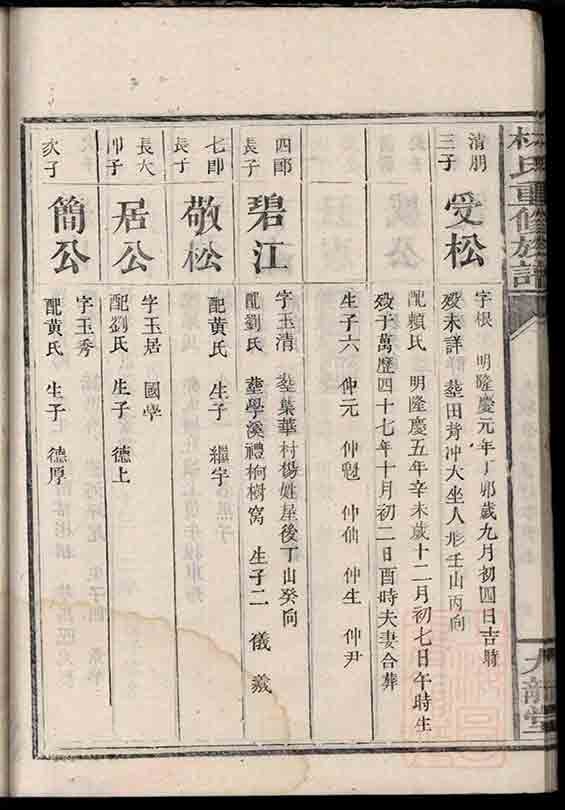 林氏重修族譜
九龍堂
清朋
三子
受松
字根 明隆慶元年丁卯歲九月初四日吉時
歿未詳 塟田背冲大坐人形壬山丙向
配賴氏 明隆慶五年辛未歲十二月初七日午時生
歿于萬歷四十七年十月初二日酉時夫妻合葬
生子六 仲元 仲魁 仲仙 仲生 仲尹
四郎
長子
碧江
字玉清 塟葉華村楊姓屋後丁山癸向
配劉氏 塟學溪禮桐樹窩 生子二 儀 羲
七郎
長子
敬松
配黃氏 生子一 繼宇
長大
郎子
居公
字玉居 國學
配劉氏 生子 德上
次子
簡公
字玉秀
配黃氏 生子 德厚